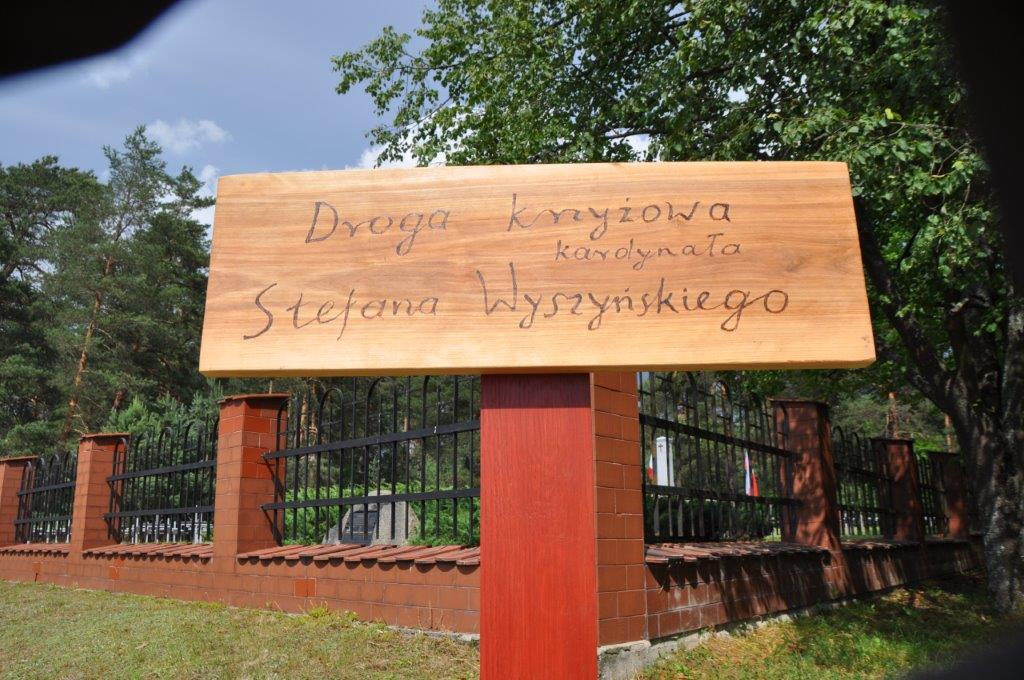 Droga krzyżowa
kardynała
Stefana Wyszyńskiego